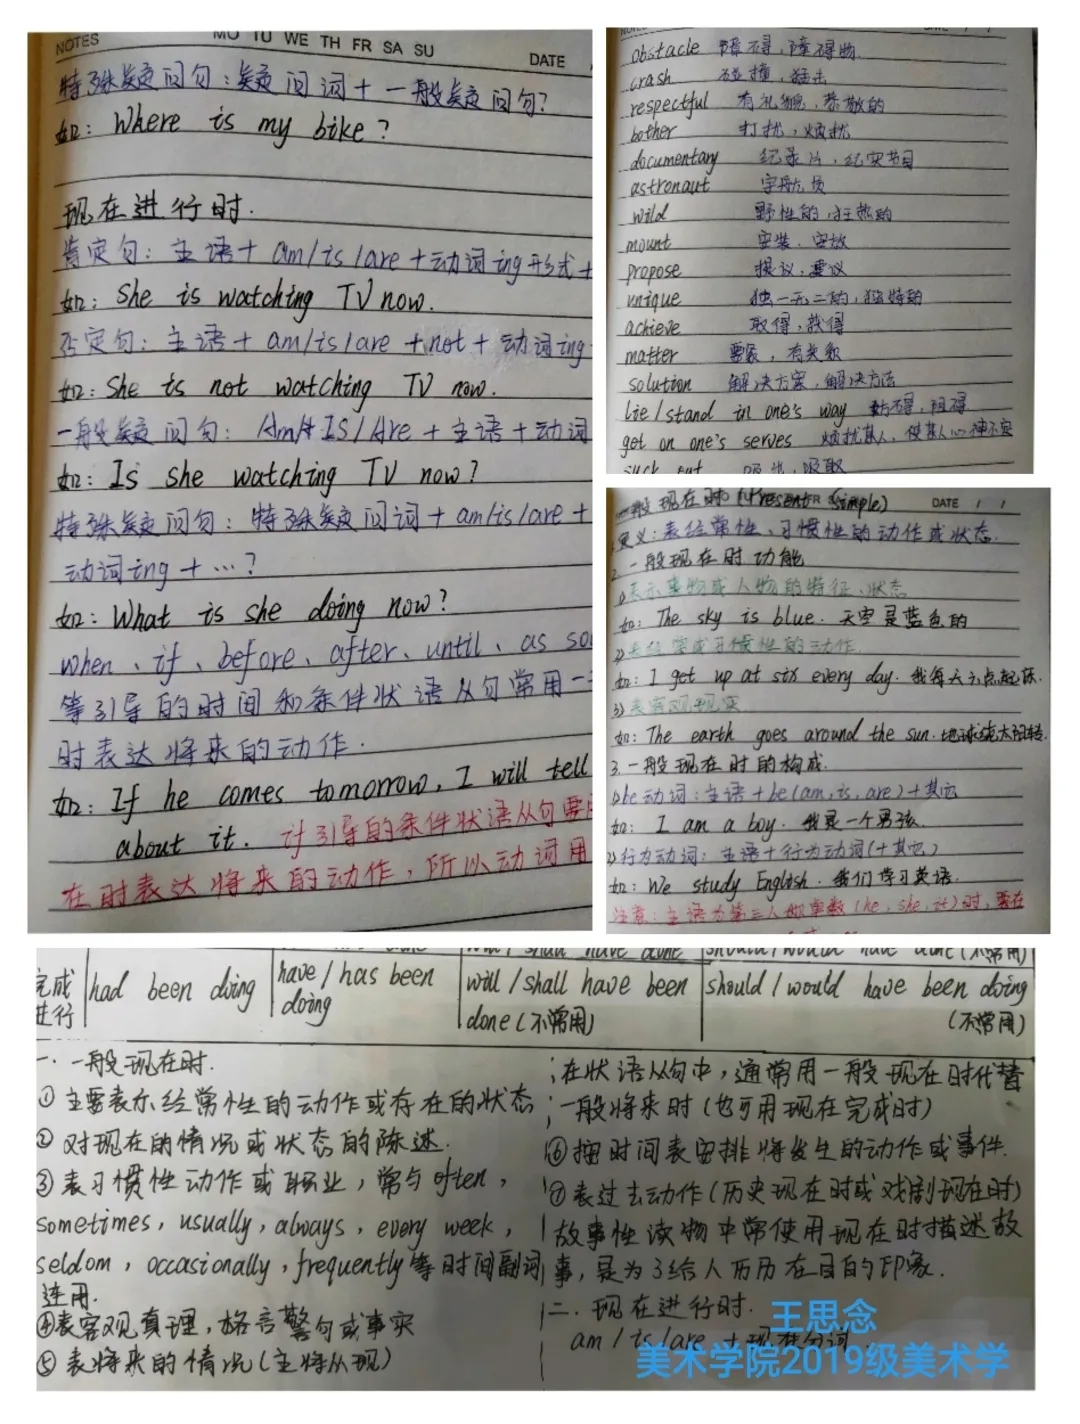 NOTES
MO TU WE TH FR SA SU
DATE
特殊疑问句:疑问词+一般疑问句?
如: Where is my bike?
现在进行时.
肯定句:主语+ am/is/are +动词ing形式+
如: She is watching TV now.
否定句:主语+ am/is/are + not + 动词ing
如: She is not watching TV now.
一般疑问句: Am/IS/Are + 主语+动词
如: Is she watching TV now?
特殊疑问句:特殊疑问词+ am/is/are +
动词ing + …?
如: What is she doing now?
when、if、before、after、until、as so
等引导的时间和条件状语从句常用一
时表达将来的动作.
如: If he comes tomorrow, I will tell
about it. if引导的条件状语从句要
在时表达将来的动作,所以动词用
obstacle 障碍,障碍物
crash 碰撞,猛击
respectful 有礼貌,恭敬的
bother 打扰,烦扰
documentary 纪录片,纪实节目
astronaut 宇航员
wild 野性的,狂热的
mount 安装、安放
propose 提议,建议
unique 独一无二的,独特的
achieve 取得,获得
matter 要紧,有关系
solution 解决方案,解决方法
lie/stand in one's way 妨碍,阻碍
get on one's serves 烦扰某人,使某人心神不安
suck out 吸出,吸取
一般现在时 (Present Simple)
FR
DATE / /
定义:表经常性、习惯性的动作或状态.
2.一般现在时功能
1)表示事物或人物的特征、状态
如: The sky is blue. 天空是蓝色的
2)表经常或习惯性的动作.
如: I get up at six every day. 我每天六点起床.
3)表客观现实
如: The earth goes around the sun. 地球绕太阳转.
3.一般现在时的构成.
1)be动词:主语+be(am,is,are)+其它
如: I am a boy. 我是一个男孩.
2)行为动词:主语+行为动词(+其它)
如: We study English. 我们学习英语.
注意:主语为第三人称单数(he,she,it)时,要在
shall have done
should/would have done(不常用)
完成
进行
had been doing
have/has been
doing
will/shall have been
done(不常用)
should/would have been doing
(不常用)
一.一般现在时.
①主要表示经常性的动作或存在的状态
②对现在的情况或状态的陈述.
③表习惯性动作或职业,常与often,
sometimes, usually, always, every week,
seldom, occasionally, frequently等时间副词
连用.
④表客观真理,格言警句或事实
⑤表将来的情况(主将从现)
在状语从句中,通常用一般现在时代替
一般将来时(也可用现在完成时)
⑥按时间表安排将发生的动作或事件.
⑦表过去动作(历史现在时或戏剧现在时)
故事性读物中常使用现在时描述故
事,是为了给人历历在目的印象.
二.现在进行时.
am/is/are +现在分词
王思念
美术学院2019级美术学